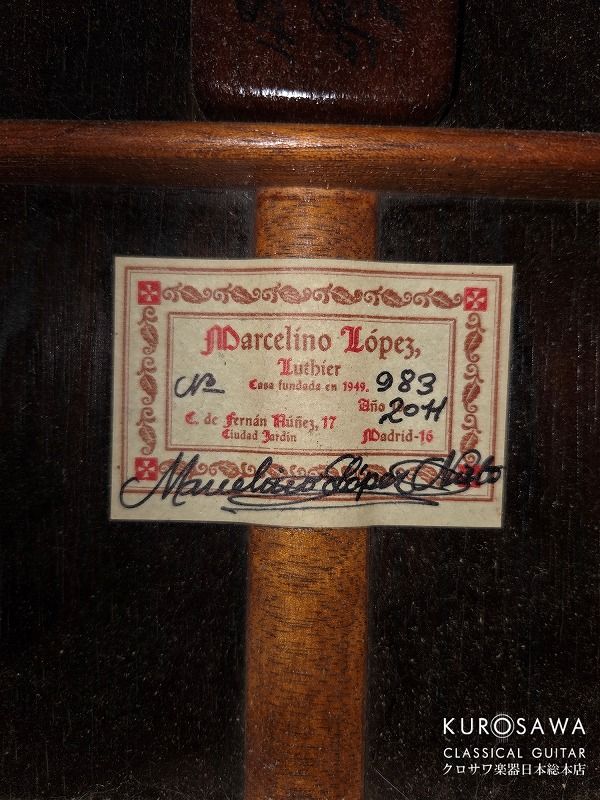 Marcelino López,
Luthier
Casa fundada en 1949.
Nº 983
Año 2011
C. de Fernán Núñez, 17
Ciudad Jardín Madrid-16
Marcelino López Nieto
KUROSAWA
CLASSICAL GUITAR
クロサワ楽器日本総本店